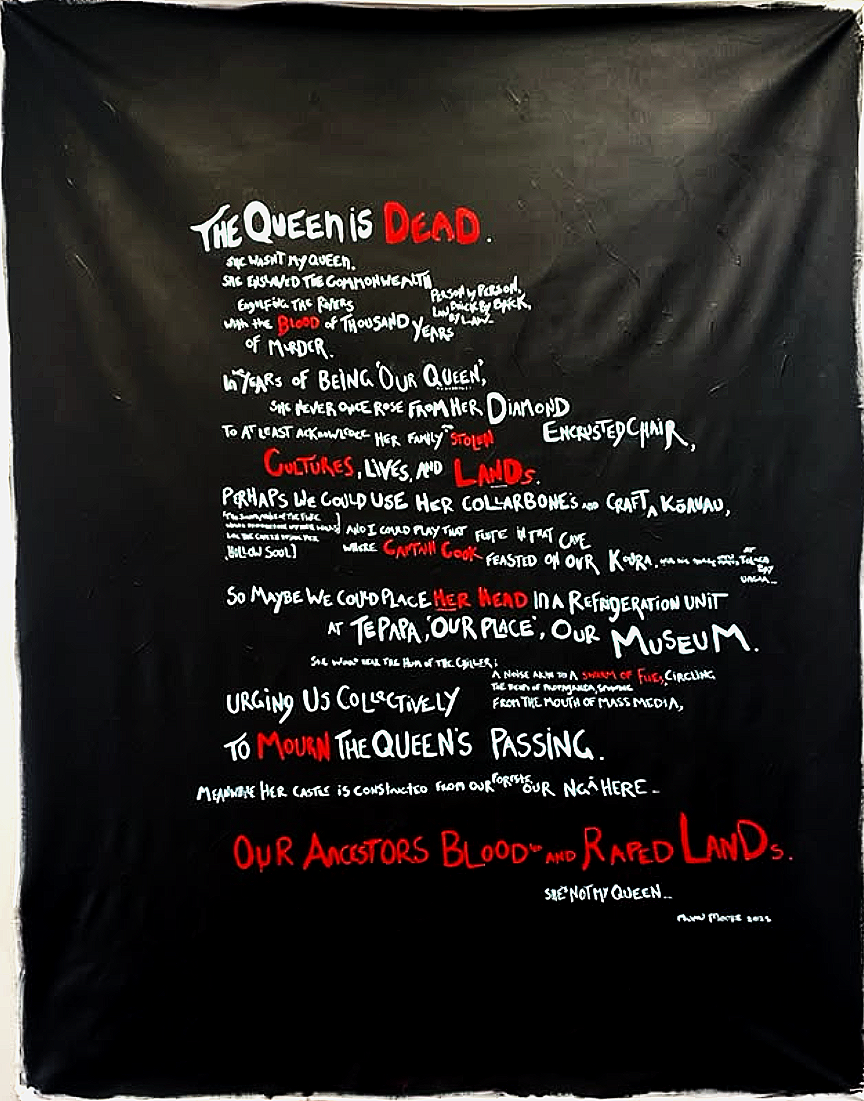 THE QUEEN IS DEAD.
SHE WASN'T MY QUEEN.
SHE ENSLAVED THE COMMONWEALTH
PERSON by PERSON,
BRICK BY BRICK,
BY LAW
THE RIVERS
with the BLOOD of THOUSAND YEARS
OF MURDER.
In YEARS OF BEING 'OUR QUEEN',
SHE NEVER ONCE ROSE FROM HER DIAMOND
ENCRUSTED CHAIR,
TO AT LEAST ACKNOWLEDGE HER FAMILY STOLEN
CULTURES, LIVES, AND LANDS.
PERHAPS WE COULD USE HER COLLARBONES AND CRAFT A KŌAUAU,
AND I COULD PLAY THAT FLUTE IN THAT CAVE
HOLLOW SOUL]
WHERE CAPTAIN COOK FEASTED ON OUR KOURA.
SO MAYBE WE COULD PLACE HER HEAD IN A REFRIGERATION UNIT
AT TE PAPA, 'OUR PLACE', OUR MUSEUM.
SHE WONT HEAR THE HUM OF THE CHILLER;
A NOISE AKIN TO A SWARM OF FLIES, CIRCLING
THE OF PROPAGANDA,
FROM THE MOUTH OF MASS MEDIA,
URGING US COLLECTIVELY
TO MOURN THE QUEEN'S PASSING.
MEANWHILE HER CASTLE IS CONSTRUCTED FROM OUR FORESTS OUR NGĀHERE -
OUR ANCESTORS BLOOD AND RAPED LANDS.
SHE'S NOT MY QUEEN..